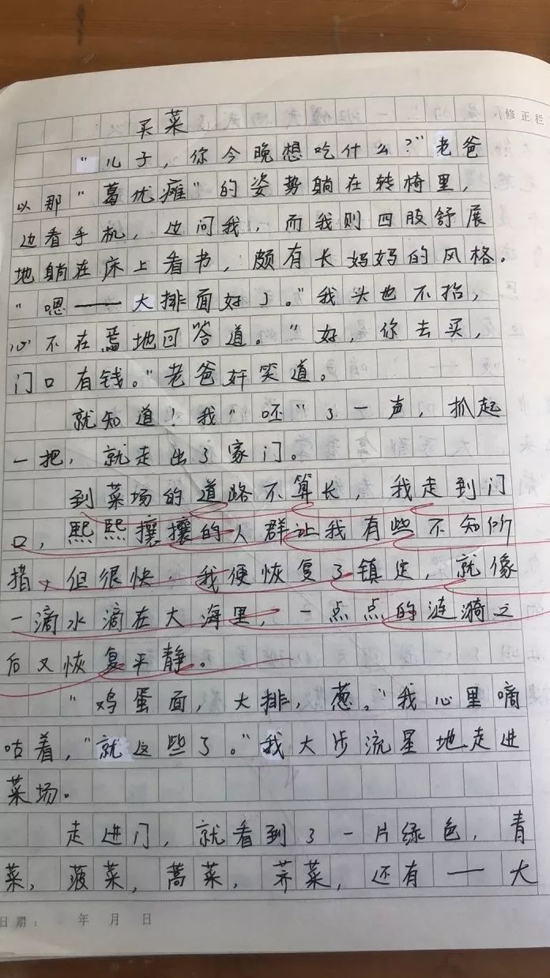 修正栏
买菜
“儿子，你今晚想吃什么？”老爸
以那“葛优瘫”的姿势躺在转椅里，
边看手机，边问我，而我则四股舒展
地躺在床上看书，颇有长妈妈的风格。
“嗯——大排面好了。”我头也不抬，
心不在焉地回答道。“好，你去买，
门口有钱。”老爸奸笑道。
就知道！我“呸”了一声，抓起
一把，就走出了家门。
到菜场的道路不算长，我走到门
口，熙熙攘攘的人群让我有些不知所
措，但很快，我便恢复了镇定，就像
一滴水滴在大海里，一点点的涟漪之
后又恢复平静。
“鸡蛋面，大排，葱。”我心里嘀
咕着，“就这些了。”我大步流星地走进
菜场。
走进门，就看到了一片绿色，青
菜，菠菜，蒿菜，荠菜，还有——大
日期： 年 月 日